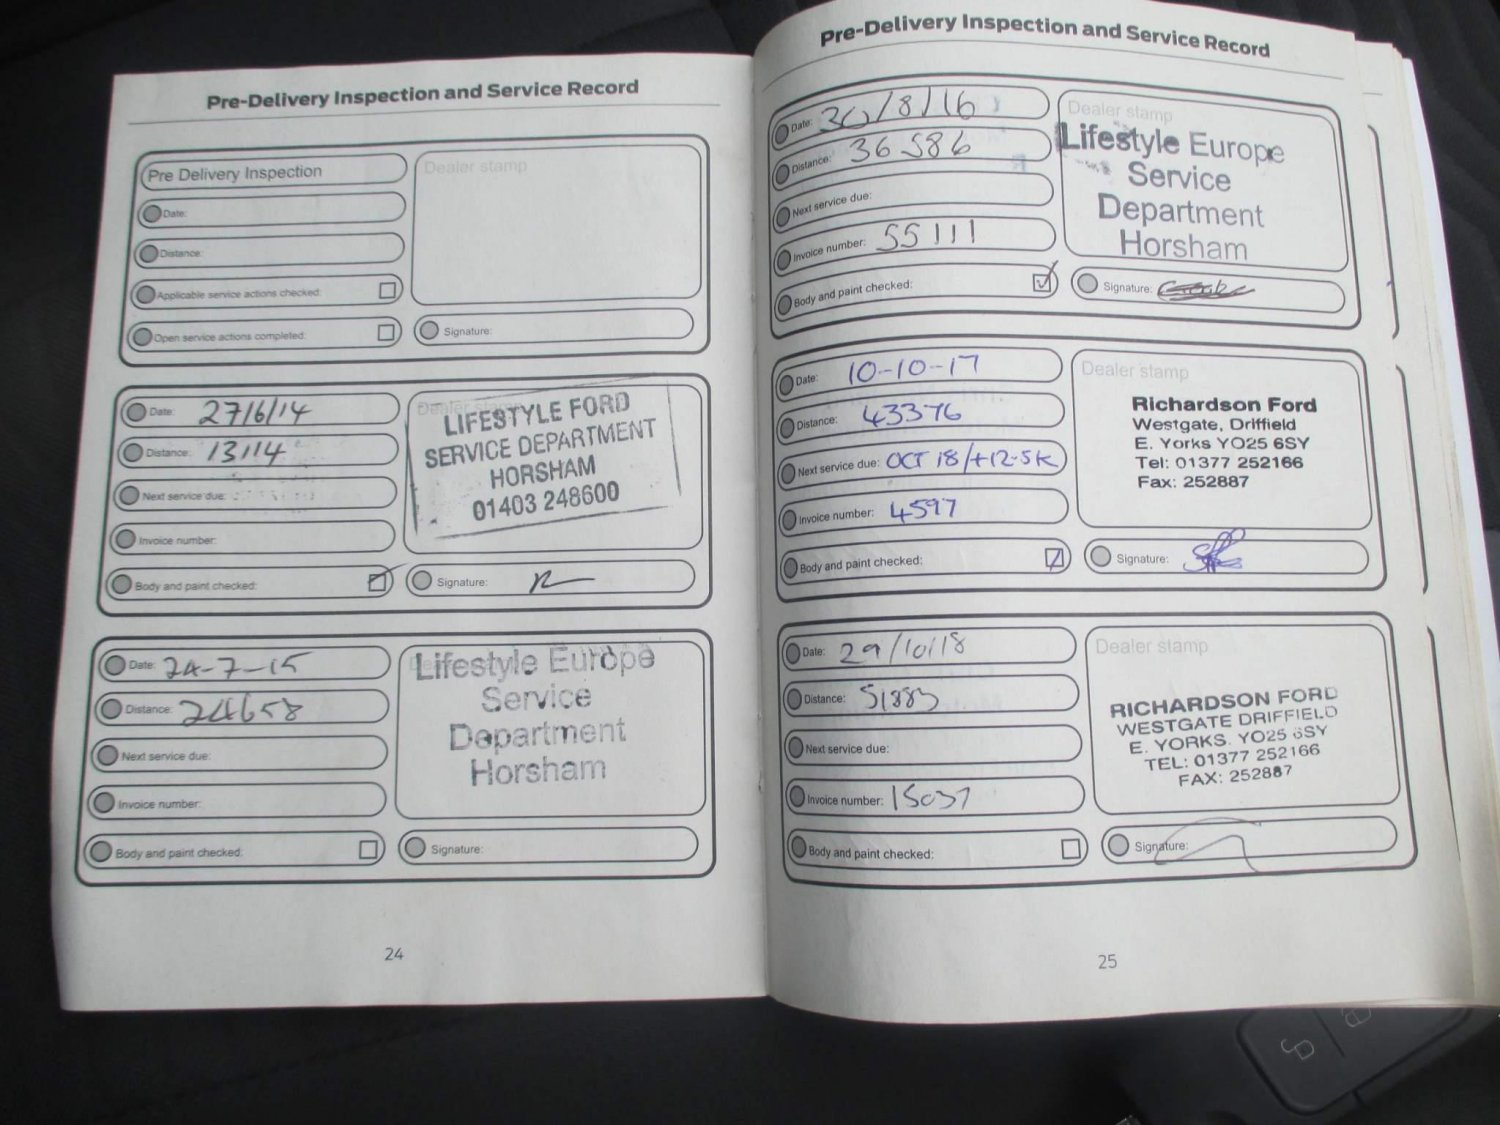 Pre-Delivery Inspection and Service Record
Pre Delivery Inspection
Dealer stamp
Date:
Distance:
Applicable service actions checked:
Open service actions completed:
Signature:
Date: 27/6/14
Distance: 13114
Next service due:
Invoice number:
Body and paint checked:
Dealer stamp
LIFESTYLE FORD
SERVICE DEPARTMENT
HORSHAM
01403 248600
Signature:
Date: 24-7-15
Distance: 24658
Next service due:
Invoice number:
Body and paint checked:
Lifestyle Europe
Service
Department
Horsham
Signature:
24
Pre-Delivery Inspection and Service Record
Date: 30/8/16
Distance: 36586
Next service due:
Invoice number: 55111
Body and paint checked:
Dealer stamp
Lifestyle Europe
Service
Department
Horsham
Signature:
Date: 10-10-17
Distance: 43376
Next service due: OCT 18/+12.5K
Invoice number: 4597
Body and paint checked:
Dealer stamp
Richardson Ford
Westgate, Driffield
E. Yorks YO25 6SY
Tel: 01377 252166
Fax: 252887
Signature:
Date: 29/10/18
Distance: 51883
Next service due:
Invoice number: 15037
Body and paint checked:
Dealer stamp
RICHARDSON FORD
WESTGATE DRIFFIELD
E. YORKS. YO25 6SY
TEL: 01377 252166
FAX: 252887
Signature:
25